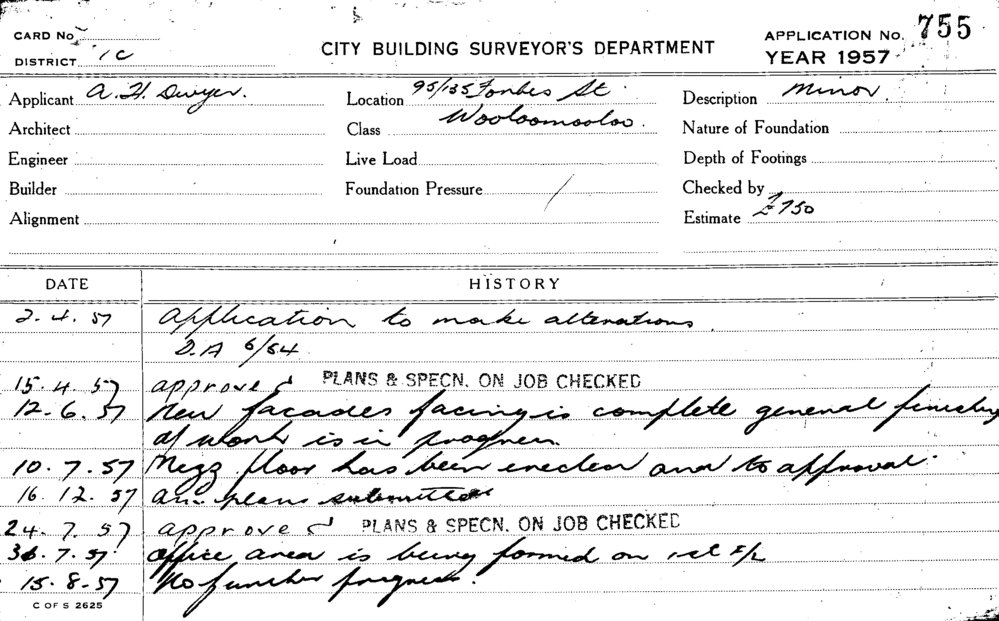 CARD No
DISTRICT 1C
CITY BUILDING SURVEYOR'S DEPARTMENT
APPLICATION No. 755
YEAR 1957
Applicant A. H. Dwyer.
Architect
Engineer
Builder
Alignment
Location 95/135 Forbes St.
Class Wooloomooloo.
Live Load
Foundation Pressure
Description Minor.
Nature of Foundation
Depth of Footings
Checked by
Estimate £750
DATE HISTORY
2.4.57 Application to make alterations.
D.A 6/54
15.4.57 approved PLANS & SPECN. ON JOB CHECKED
12.6.57 New facades facing is complete general finishing
of work is in progress.
10.7.57 Mezz floor has been erected and to approval.
16.12.57 am. plans submitted
24.7.57 approved PLANS & SPECN. ON JOB CHECKED
7.57 Office area is being formed on 1st
15.8.57 No further progress.
C OF S 2625